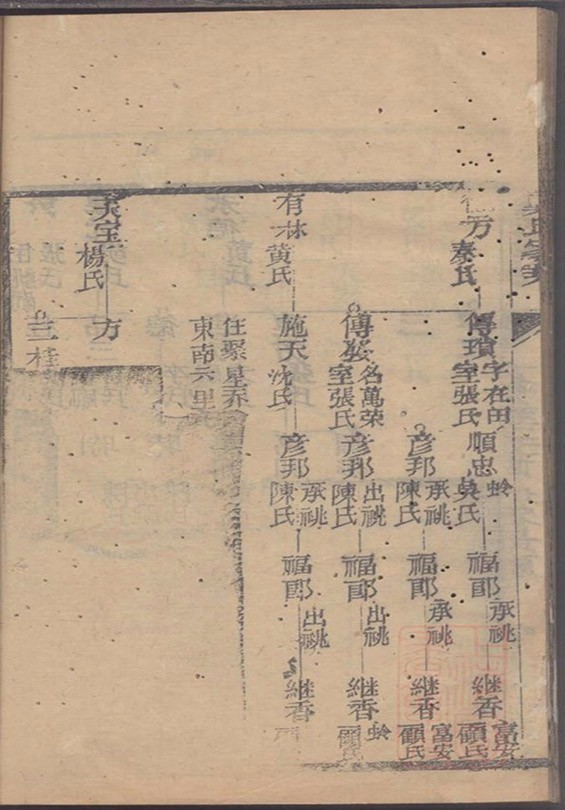 方 秦氏
傳瑣 字在田 室張氏
順忠 蛉 吳氏
福郎 承祧
継香 富安 顧氏
彦邦 承祧 陳氏
福郎 承祧
継香 富安 顧氏
有林 黄氏
傳發 名萬荣 室張氏
彦邦 出祧 陳氏
福郎 出祧
継香 蛉 顧氏
施天 沈氏
彦邦 承祧 陳氏
福郎 出祧
継香
住聚星乔
東南六里
楊氏
方
三桂